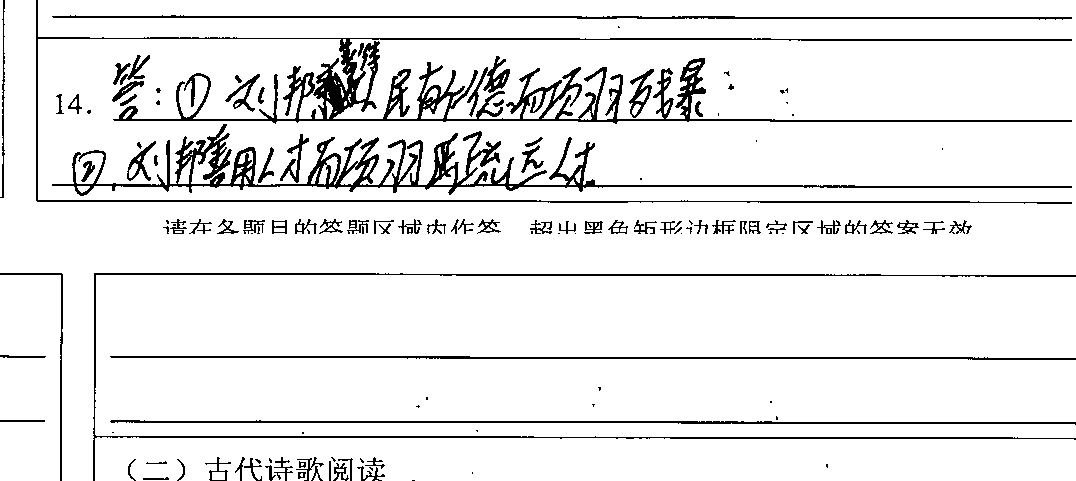 14. 答：①刘邦善待人民有仁德而项羽残暴
②.刘邦善用人才而项羽疏远人才.
请在各题目的答题区域内作答，超出黑色矩形边框限定区域的答案无效
（二）古代诗歌阅读